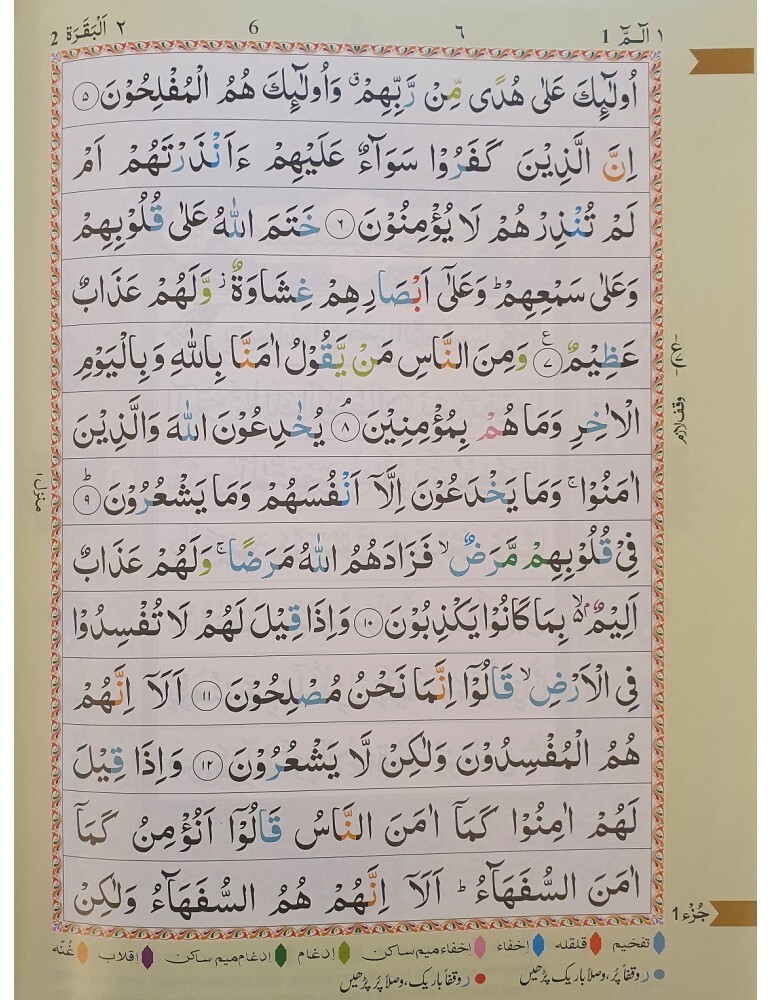 ١ الٓمّٓ 1
٦
6
٢ اَلْبَقَرَة 2
اُولٰٓئِكَ عَلٰى هُدًى مِّنْ رَّبِّهِمْ ۙ وَاُولٰٓئِكَ هُمُ الْمُفْلِحُوْنَ ۝٥
اِنَّ الَّذِيْنَ كَفَرُوْا سَوَآءٌ عَلَيْهِمْ ءَاَنْذَرْتَهُمْ اَمْ
لَمْ تُنْذِرْهُمْ لَا يُؤْمِنُوْنَ ۝٦ خَتَمَ اللّٰهُ عَلٰى قُلُوْبِهِمْ
وَعَلٰى سَمْعِهِمْ ؕ وَعَلٰٓى اَبْصَارِهِمْ غِشَاوَةٌ ؗ وَّلَهُمْ عَذَابٌ
عَظِيْمٌ ۝٧ وَمِنَ النَّاسِ مَنْ يَّقُوْلُ اٰمَنَّا بِاللّٰهِ وَبِالْيَوْمِ
الْاٰخِرِ وَمَا هُمْ بِمُؤْمِنِيْنَ ۝٨ۘ يُخٰدِعُوْنَ اللّٰهَ وَالَّذِيْنَ
اٰمَنُوْا ۚ وَمَا يَخْدَعُوْنَ اِلَّآ اَنْفُسَهُمْ وَمَا يَشْعُرُوْنَ ۝٩ؕ
فِيْ قُلُوْبِهِمْ مَّرَضٌ ۙ فَزَادَهُمُ اللّٰهُ مَرَضًا ۚ وَلَهُمْ عَذَابٌ
اَلِيْمٌۢ ۙ بِمَا كَانُوْا يَكْذِبُوْنَ ۝١٠ وَاِذَا قِيْلَ لَهُمْ لَا تُفْسِدُوْا
فِى الْاَرْضِ ۙ قَالُوْٓا اِنَّمَا نَحْنُ مُصْلِحُوْنَ ۝١١ اَلَآ اِنَّهُمْ
هُمُ الْمُفْسِدُوْنَ وَلٰكِنْ لَّا يَشْعُرُوْنَ ۝١٢ وَاِذَا قِيْلَ
لَهُمْ اٰمِنُوْا كَمَآ اٰمَنَ النَّاسُ قَالُوْٓا اَنُؤْمِنُ كَمَآ
اٰمَنَ السُّفَهَآءُ ؕ اَلَآ اِنَّهُمْ هُمُ السُّفَهَآءُ وَلٰكِنْ
وقف لازم
منزل ١
جُزْء 1
تفخيم قلقله إخفاء إخفاء ميم ساكن إدغام إدغام ميم ساكن إقلاب غُنّه
ر وقفاً پُر، وصلاً باریک پڑھیں ر وقفاً باریک، وصلاً پُر پڑھیں